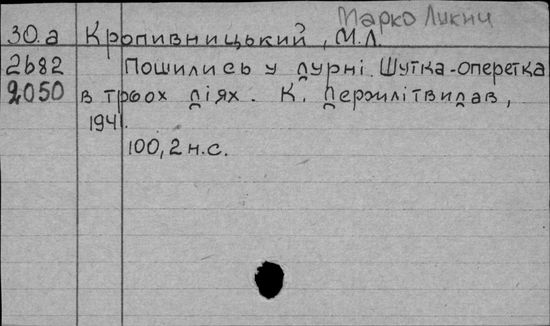 Марко
30.а Кропивницький, М.Л.
2682 Пошились у дурні. Шутка-оперетка
2050 в трьох діях. К. Держлітвидав,
1941.
100, 2 н.с.